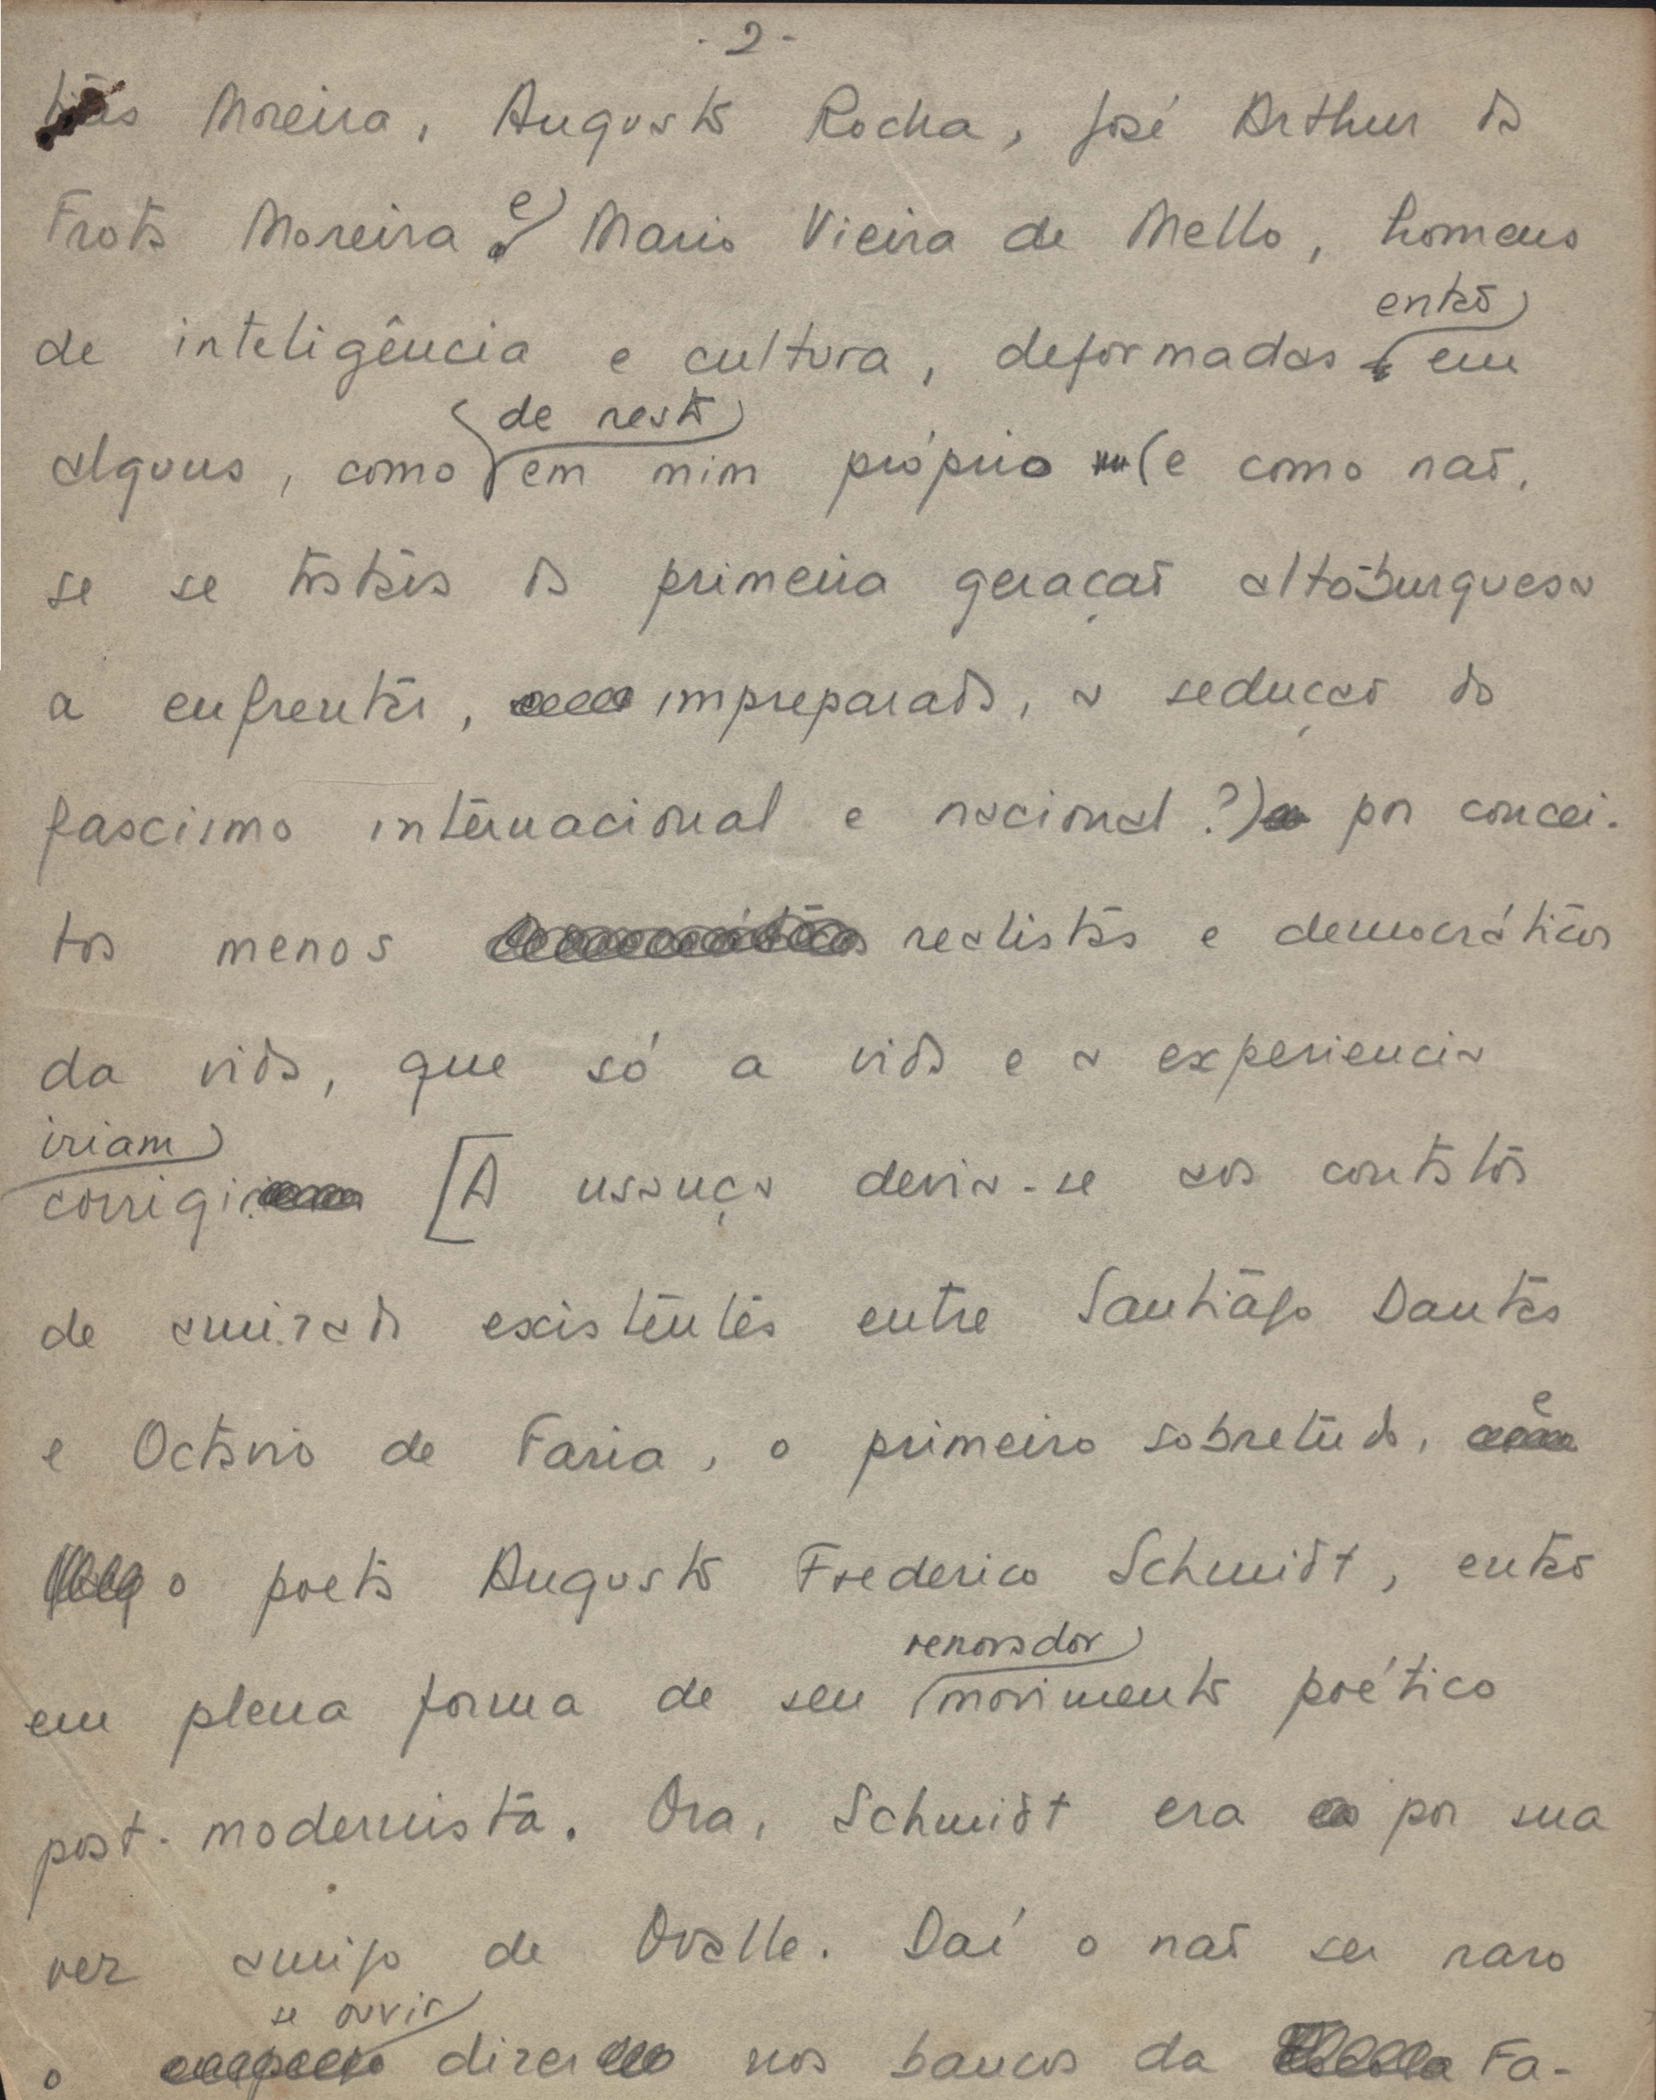 - 2 -
tias Moreira, Augusto Rocha, José Arthur da
Frota Moreira e Mario Vieira de Mello, homens
então
de inteligência e cultura, deformados em
de resto
alguns, como em mim próprio (e como não,
se se tratava da primeira geração altoburguesa
a enfrentar, impreparada, a sedução do
fascismo internacional e nacional?) por concei-
tos menos realistas e democráticos
da vida, que só a vida e a experiencia
iriam
corrigir [A usança devia-se aos contatos
de amizade existentes entre Santiago Dantas
e Octavio de Faria, o primeiro sobretudo, e
o poeta Augusto Frederico Schmidt, então
renovador
em plena forma de seu movimento poético
post-modernista. Ora, Schmidt era por sua
vez amigo de Ovalle. Daí o não ser raro
se ouvir
o dizer nos bancos da Fa-